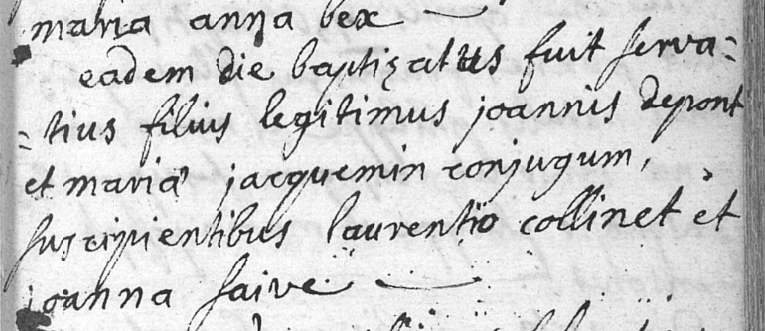 maria anna bex
eadem die baptizatus fuit serva=
=tius filius legitimus joannis depont
et maria jacquemin conjugum,
suscipientibus laurentio collinet et
joanna saive